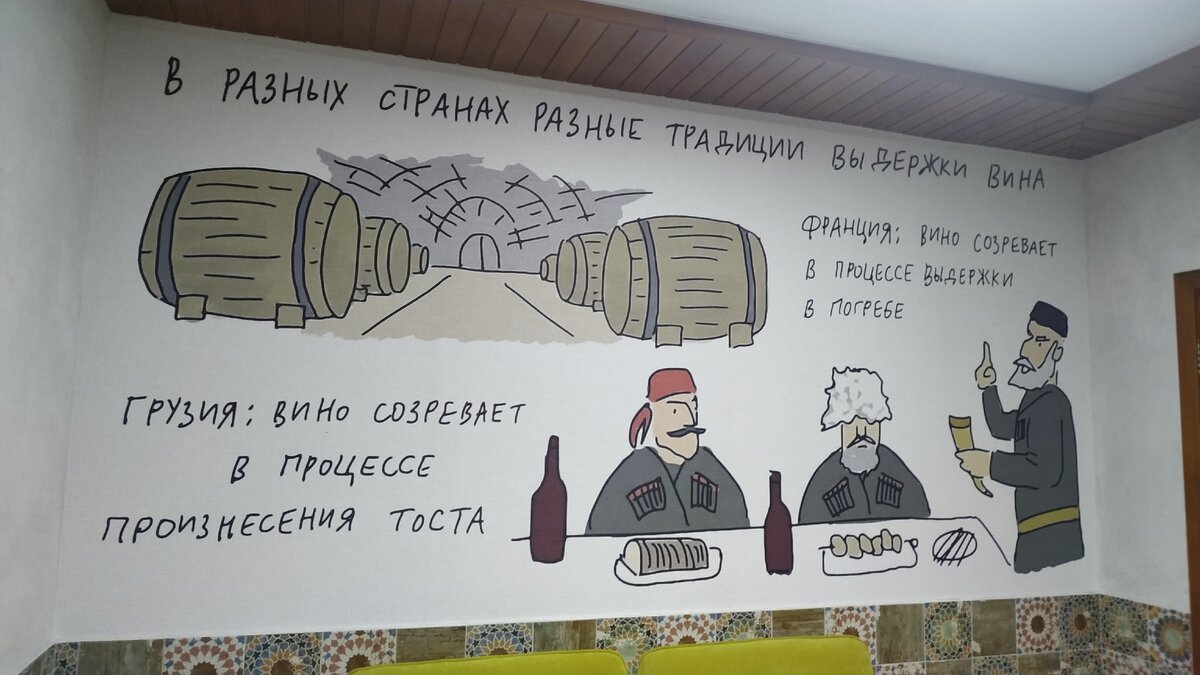 В РАЗНЫХ СТРАНАХ РАЗНЫЕ ТРАДИЦИИ ВЫДЕРЖКИ ВИНА
ФРАНЦИЯ: ВИНО СОЗРЕВАЕТ
В ПРОЦЕССЕ ВЫДЕРЖКИ
В ПОГРЕБЕ
ГРУЗИЯ: ВИНО СОЗРЕВАЕТ
В ПРОЦЕССЕ
ПРОИЗНЕСЕНИЯ ТОСТА